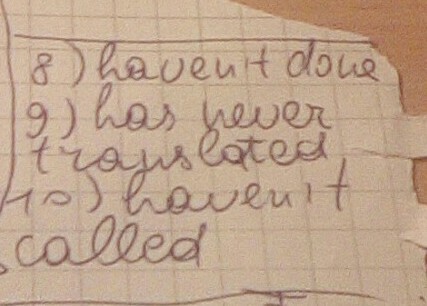 8) haven't done
9) has never
translated
10) haven't
called